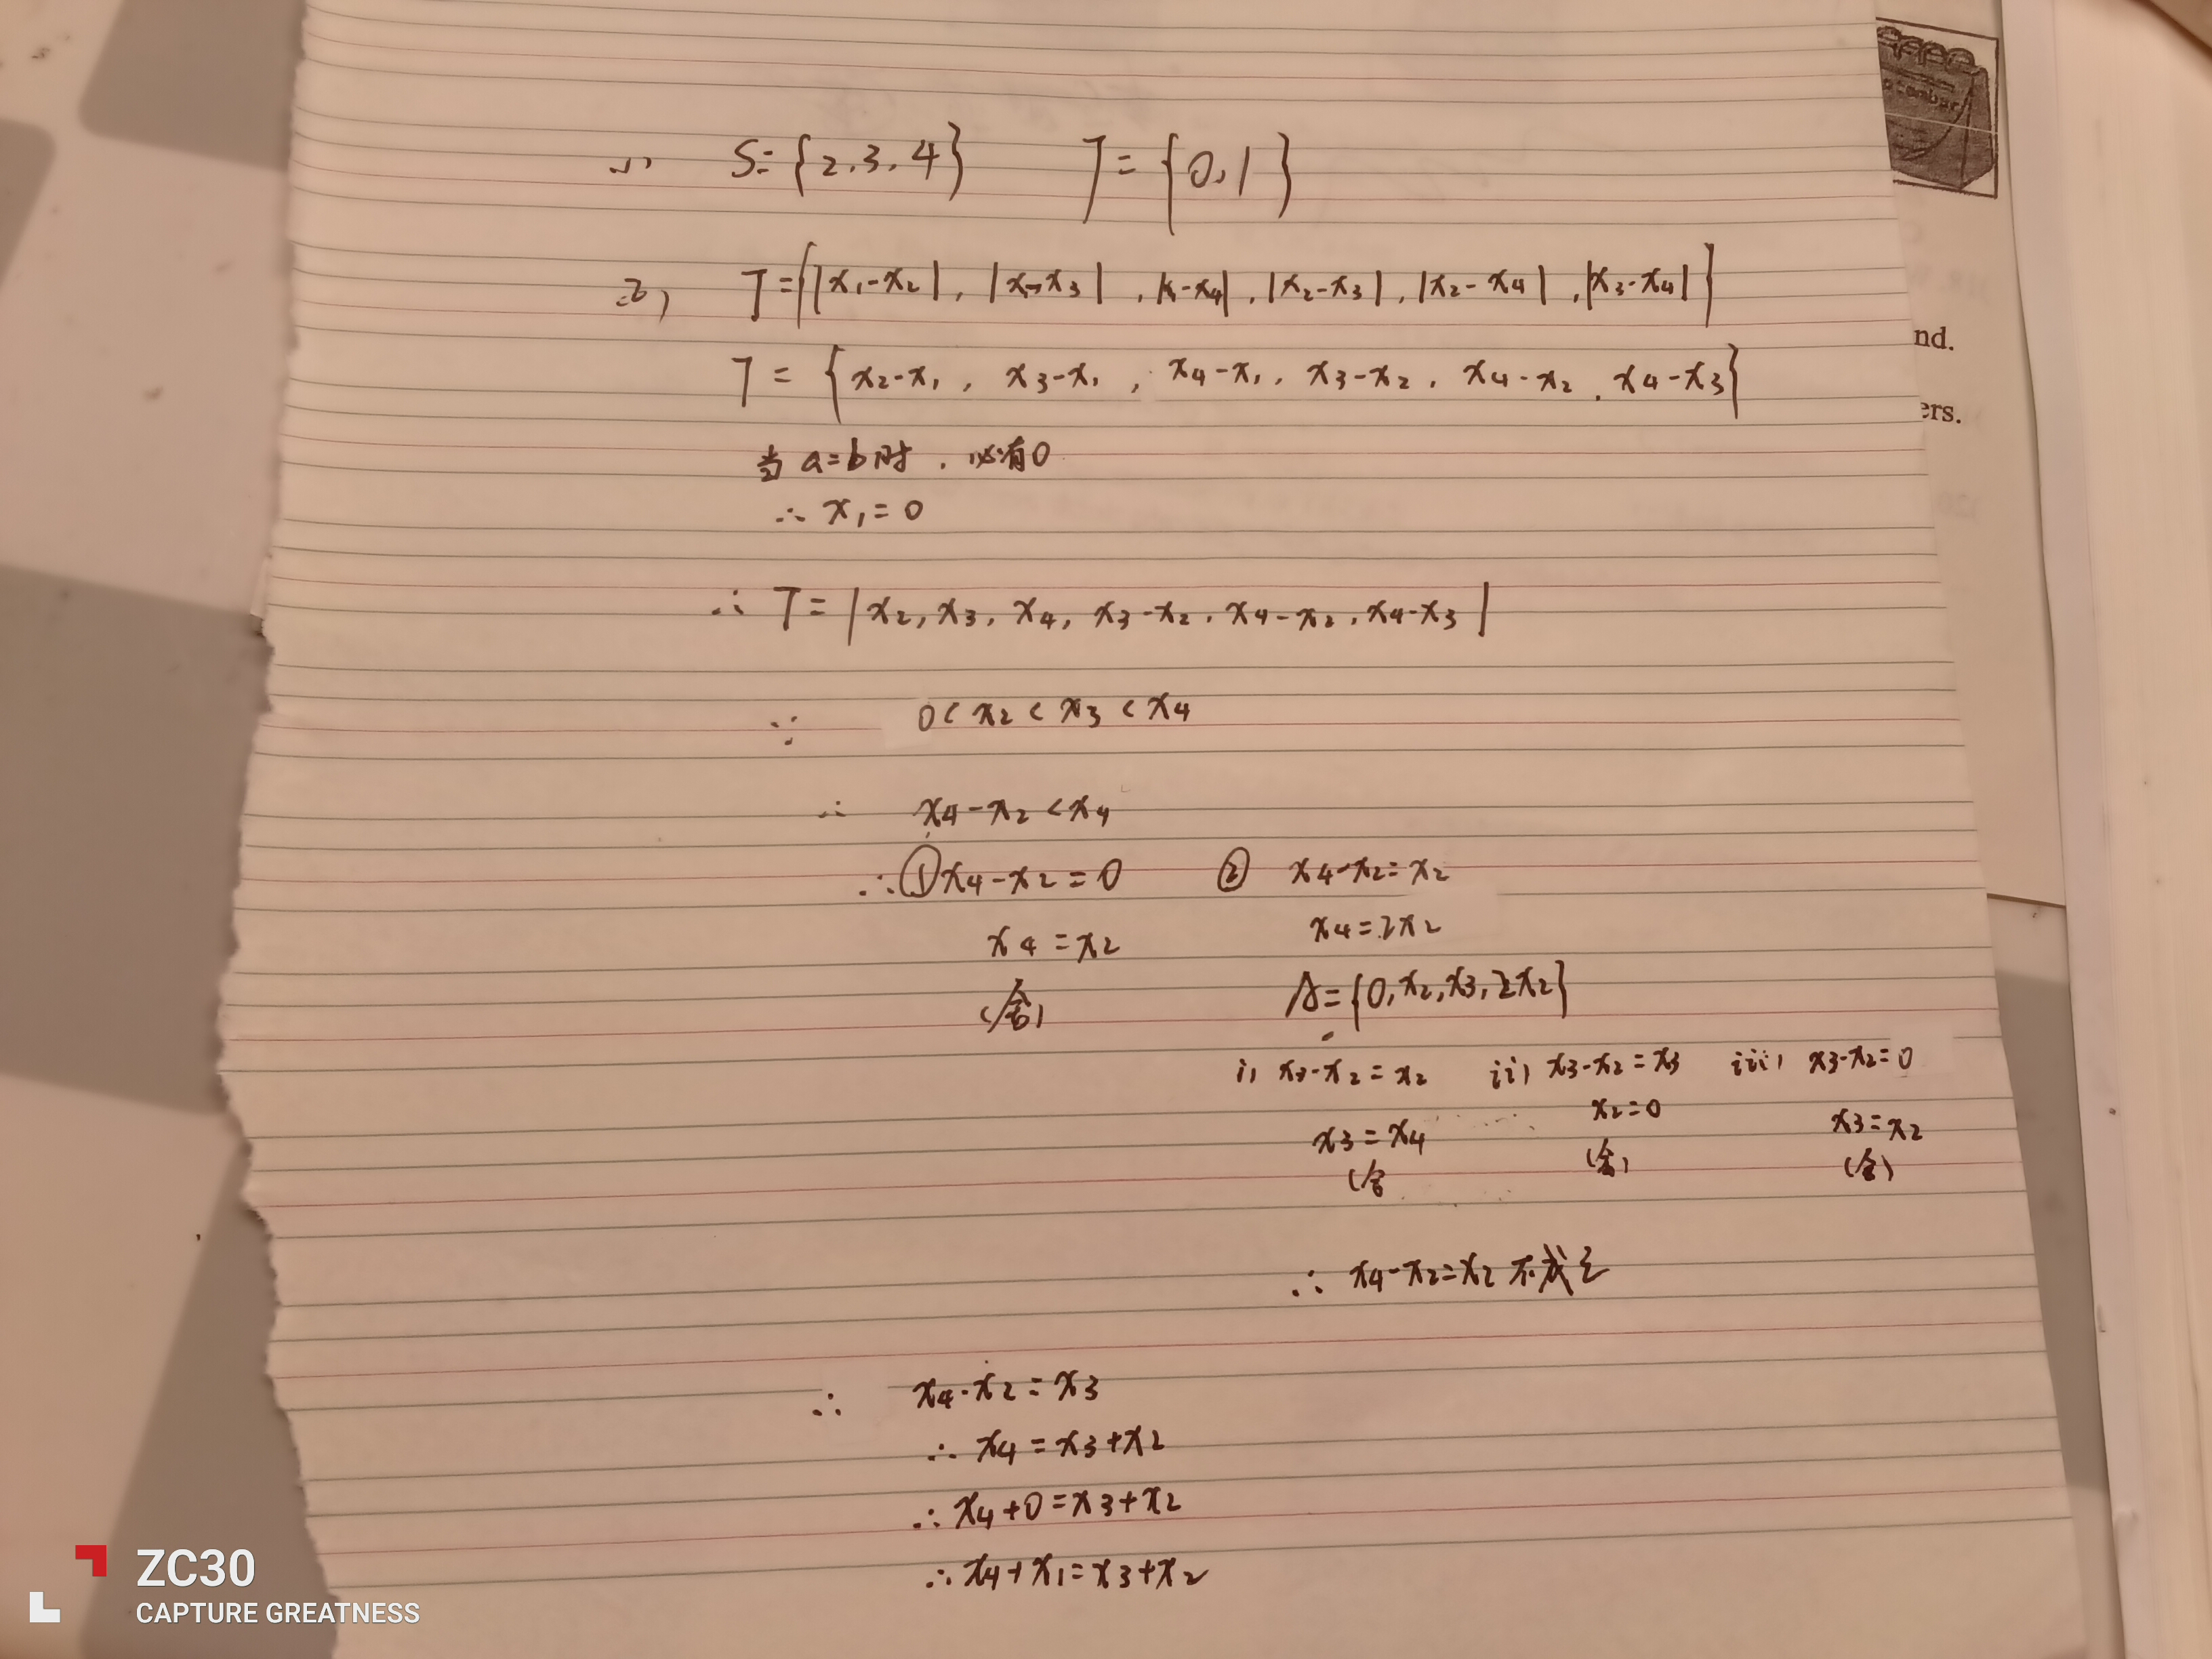 (1) S={2,3,4} T={0,1}
(2) T={|x₁-x₂|, |x₁-x₃|, |x₁-x₄|, |x₂-x₃|, |x₂-x₄|, |x₃-x₄|}
T={x₂-x₁, x₃-x₁, x₄-x₁, x₃-x₂, x₄-x₂, x₄-x₃}
当a=b时,必有0
∴ x₁=0
∴ T=|x₂, x₃, x₄, x₃-x₂, x₄-x₂, x₄-x₃|
∵ 0<x₂<x₃<x₄
∴ x₄-x₂<x₄
∴ ①x₄-x₂=0 ② x₄-x₂=x₂
x₄=x₂ x₄=2x₂
(舍) A={0,x₂,x₃,2x₂}
i) x₃-x₂=x₂ ii) x₃-x₂=x₃ iii) x₃-x₂=0
x₃=x₄ x₂=0 x₃=x₂
(舍 (舍) (舍)
∴ x₄-x₂=x₂不成立
∴ x₄-x₂=x₃
∴ x₄=x₃+x₂
∴ x₄+0=x₃+x₂
∴ x₄+x₁=x₃+x₂
nd.
ers.
ZC30
CAPTURE GREATNESS